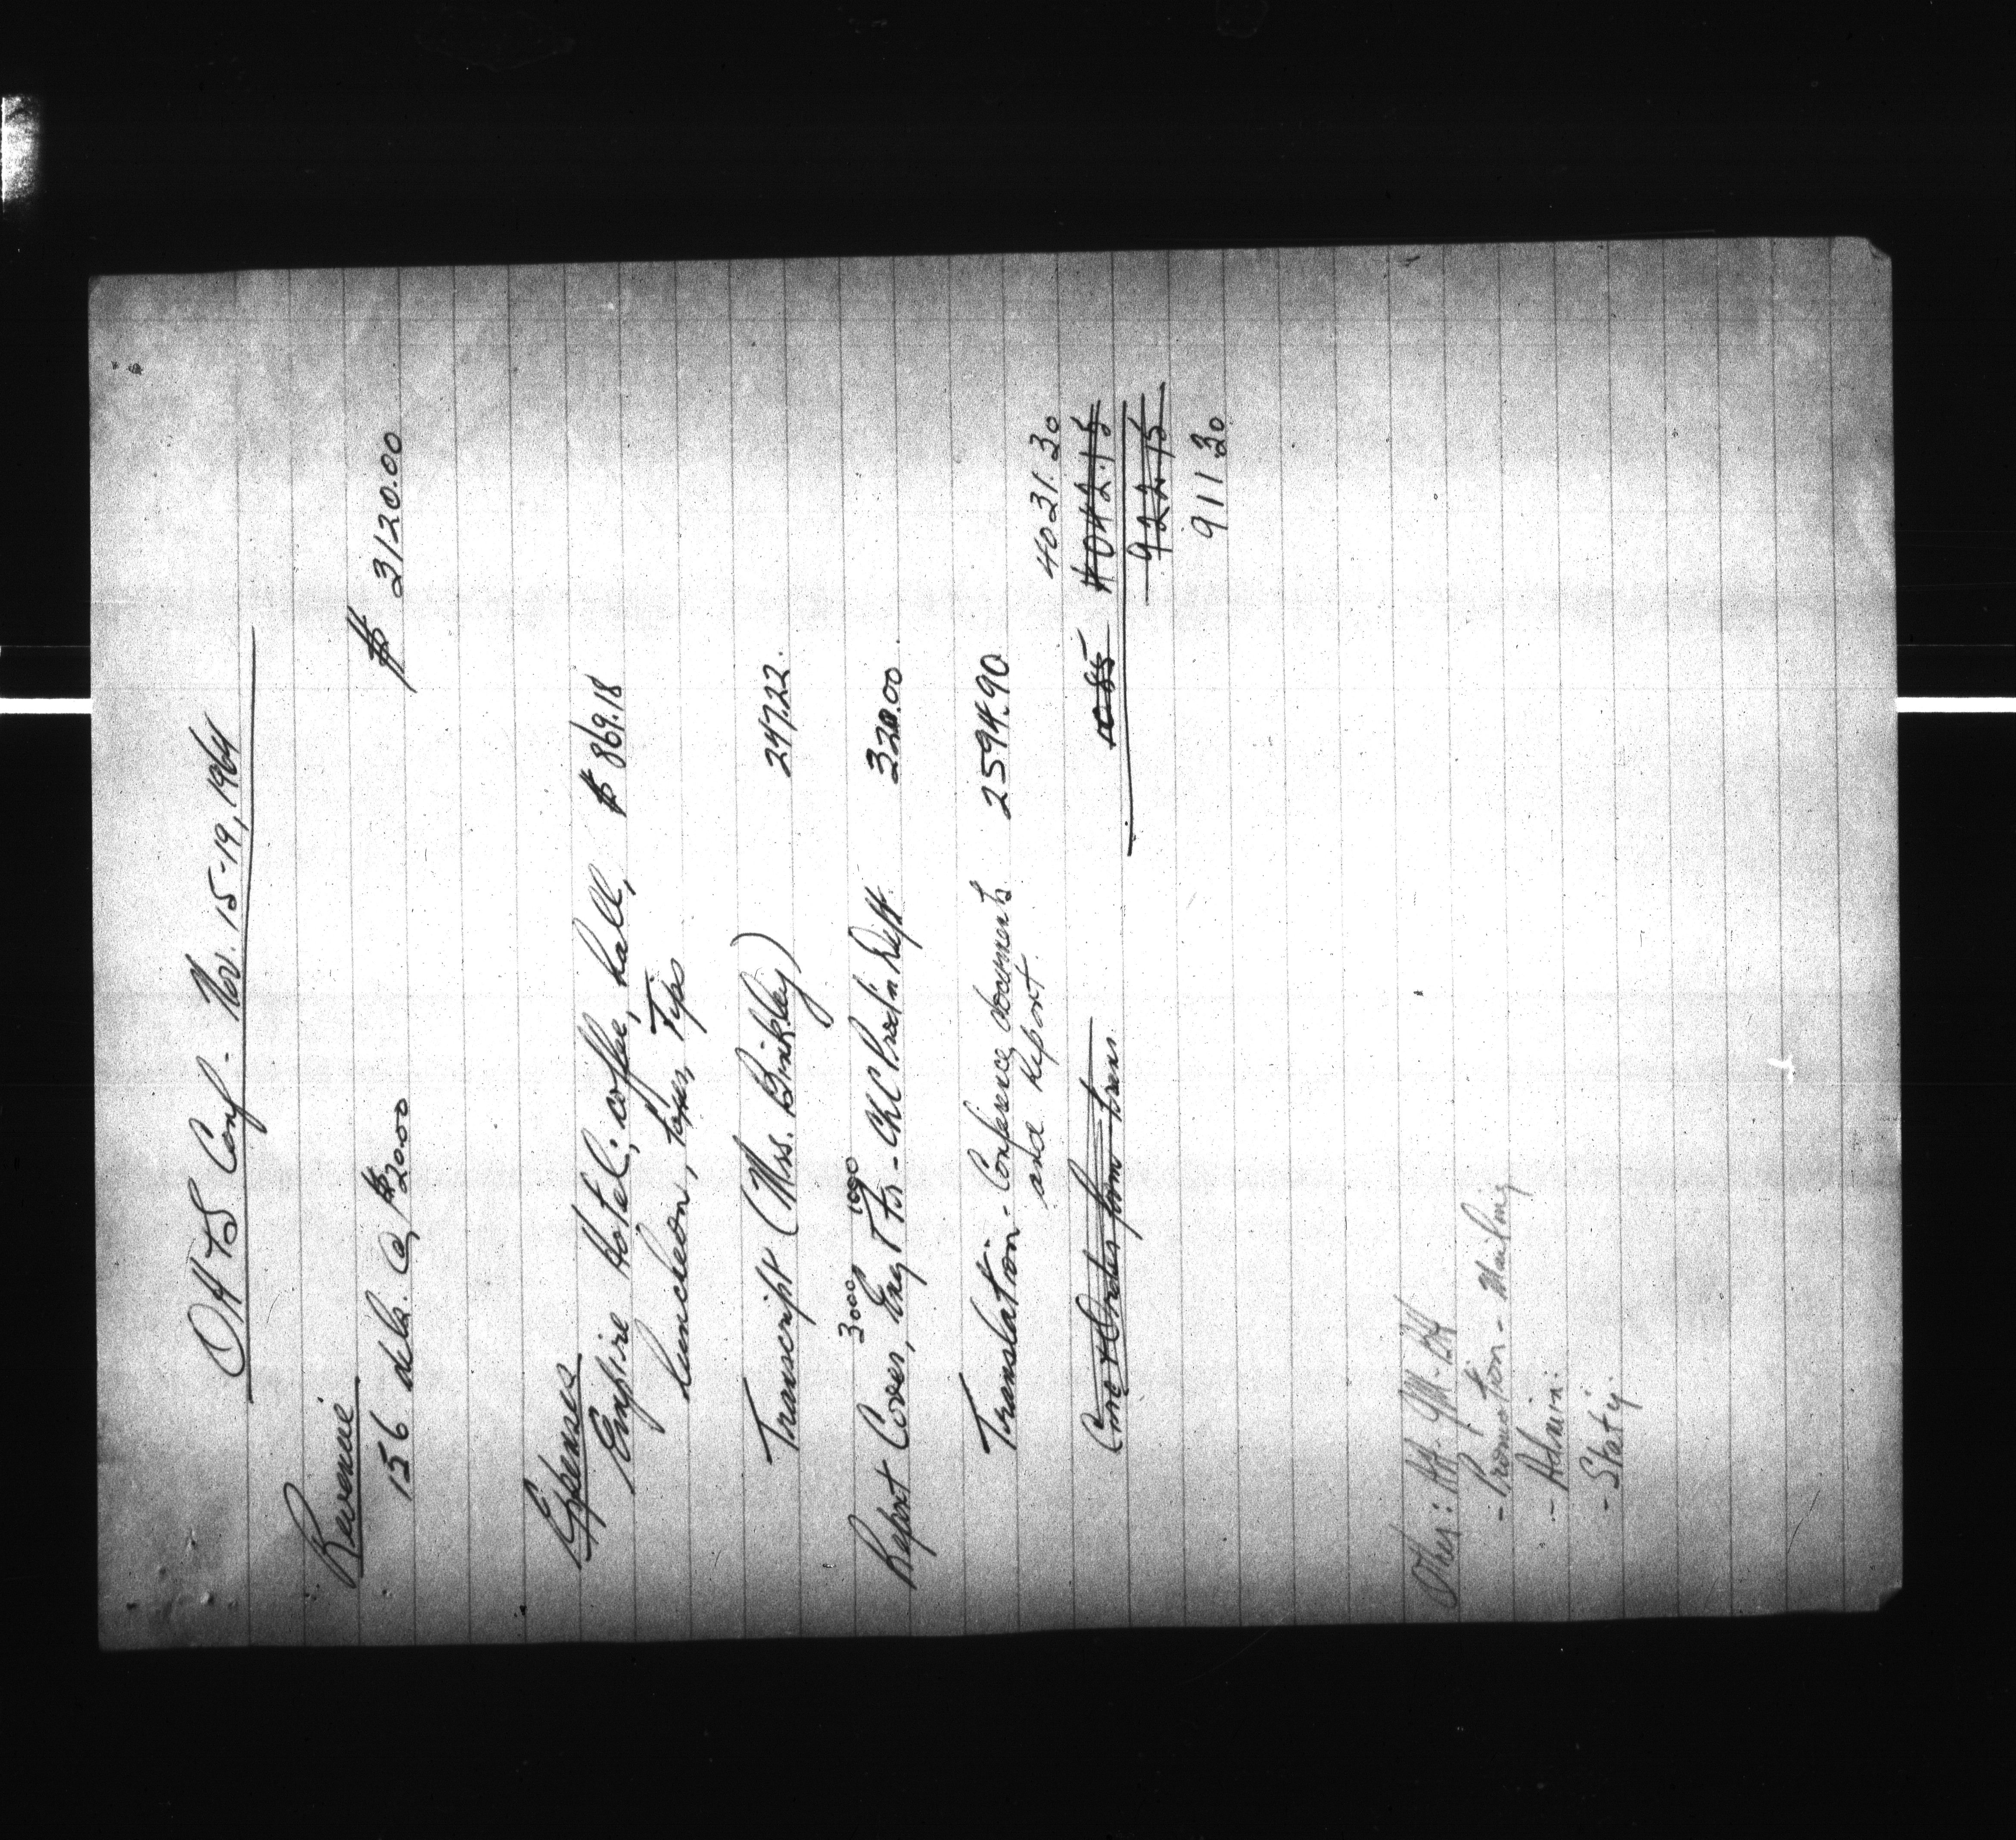 OHTS Conf. Nov. 15-19, 1964
Revenue
156 dels. @ $20.00 $ 3120.00
Expenses
Empire Hotel; coffee, hall, $ 869.18
luncheon, taxes, Tips
Transcript (Mrs. Brinkley) 247.22
3000 1000
Report Cover, Eng & Fr. - CLC Prod'n Dept. 320.00
Translation - Conference documents 2594.90
and Report. 4031.30
from 10.85 4042.15
922.15
911 30
Other:
- Promotion - Mailing
- Admin.
- Staty.